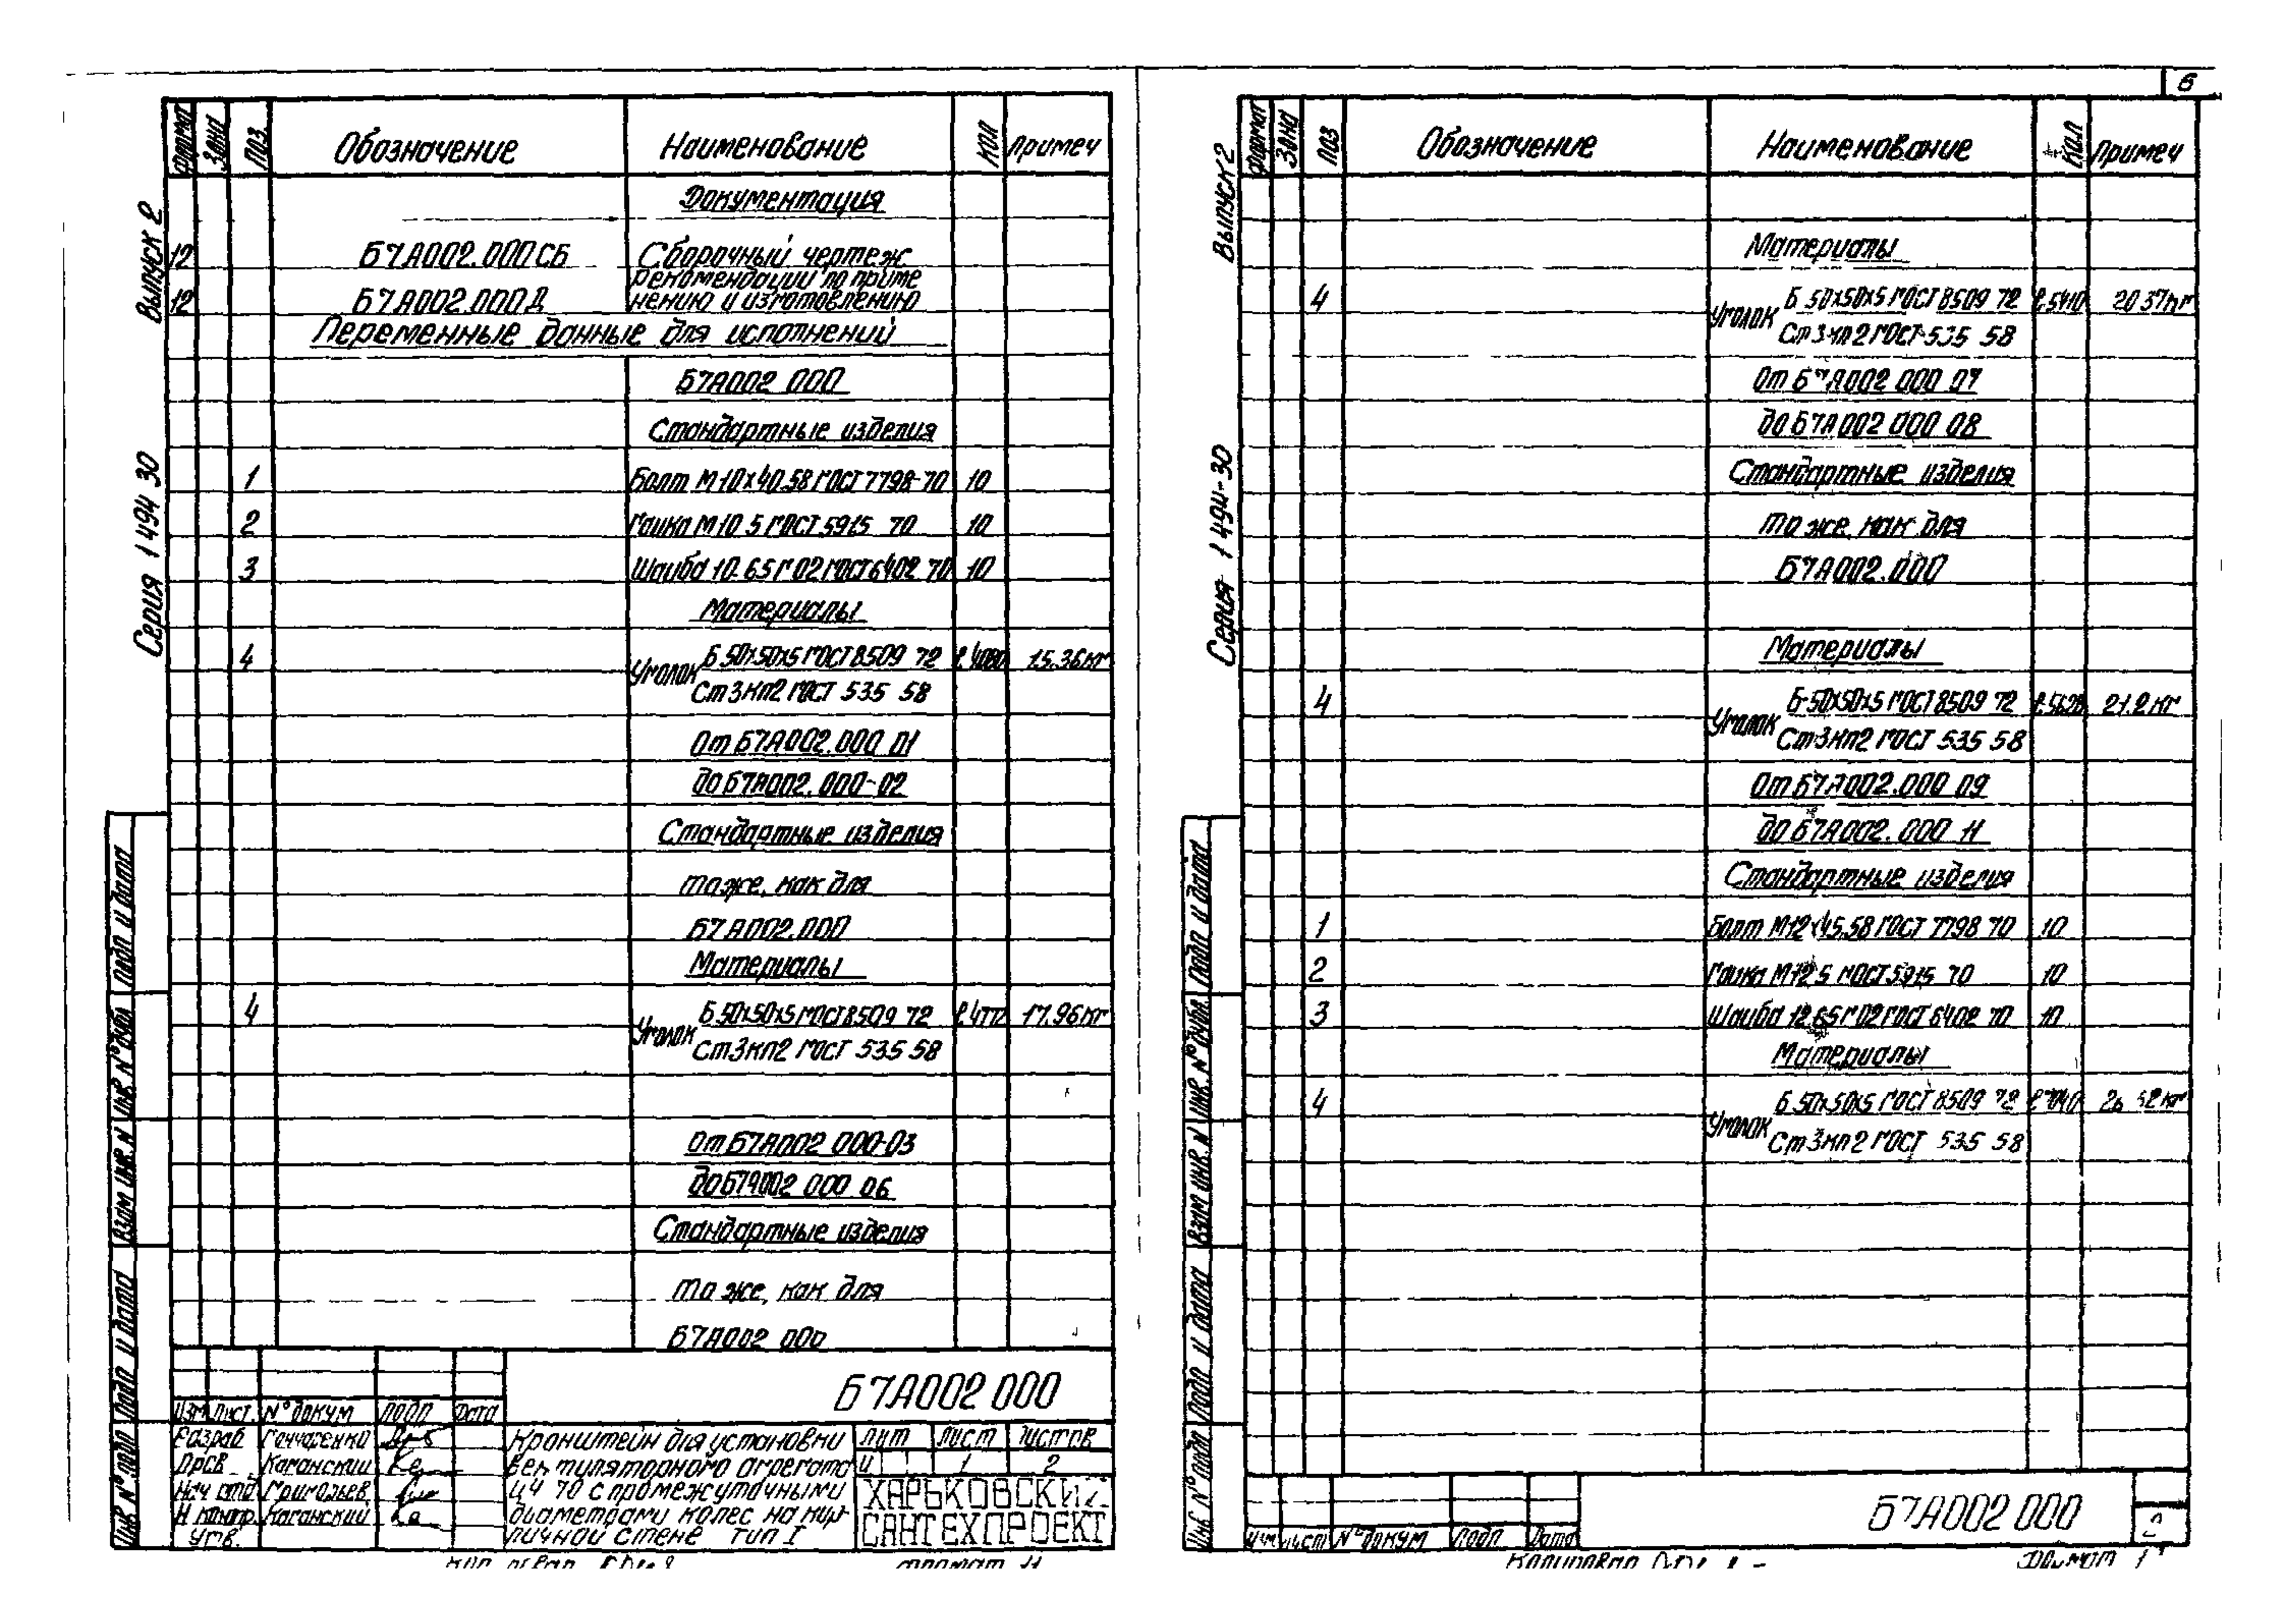 6
Выпуск 2
Серия 1 494 30
Формат Зона Поз. Обозначение Наименование Кол Примеч
Документация
12 Б7А002.000СБ Сборочный чертеж
Рекомендации по приме
12 Б7А002.000Д нению и изготовлению
Переменные данные для исполнений
Б7А002 000
Стандартные изделия
1 Болт М10х40.58 ГОСТ 7798-70 10
2 Гайка М10 5 ГОСТ 5915 70 10
3 Шайба 10.65Г 02 ГОСТ 6402 70 10
Материалы
4 Уголок Б 50х50х5 ГОСТ 8509 72 ℓ 4080 15.36кг
Ст3кп2 ГОСТ 535 58
От Б7А002.000 01
до Б7А002.000-02
Стандартные изделия
то же, как для
Б7А002.000
Материалы
4 Уголок Б 50х50х5 ГОСТ 8509 72 17.96кг
Ст3кп2 ГОСТ 535 58
От Б7А002 000-03
до Б7А002 000 06
Стандартные изделия
то же, как для
Б7А002 000
Подп и дата
Инв. N° дубл
Взам инв. N
Подп и дата
Инв N° подл
Б7А002 000
Изм Лист. N° докум Подп Дата
Разраб Гончаренко
Каганский
Нач отд Григорьев
Н контр. Каганский
Утв.
Кронштейн для установки
вентиляторного агрегата
Ц4 70 с промежуточными
диаметрами колес на кир-
пичной стене тип I
Лит Лист Листов
И 1 2
ХАРЬКОВСКИЙ
САНТЕХПРОЕКТ
Формат 11
Выпуск 2
Серия 1 494-30
Формат Зона Поз Обозначение Наименование Кол Примеч
Материалы
4 Уголок Б 50х50х5 ГОСТ 8509 72 ℓ.5410 20 37кг
Ст3кп2 ГОСТ-535 58
От Б7А002 000 07
до Б7А002 000 08
Стандартные изделия
то же, как для
Б7А002.000
Материалы
4 Уголок Б-50х50х5 ГОСТ 8509 72 21.2 кг
Ст3кп2 ГОСТ 535 58
От Б7А002.000 09
до Б7А002.000 11
Стандартные изделия
1 Болт М12х45.58 ГОСТ 7798 70 10
2 Гайка М12 5 ГОСТ 5915 70 10
3 Шайба 12 65Г 02 ГОСТ 6402 70 10
Материалы
4 Уголок Б 50х50х5 ГОСТ 8509 72
Ст3кп2 ГОСТ 535 58
Подп и дата
Инв. N° дубл.
Взам инв. N
Подп и дата
Инв N° подл
Изм Лист N° докум Подп Дата
Б7А002 000
2
Копировал
Формат